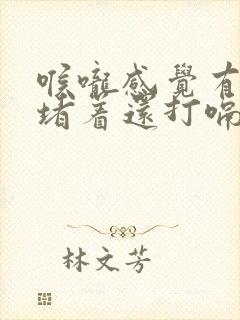 喉嚨感覺有
堵着還打嗝
林文芳